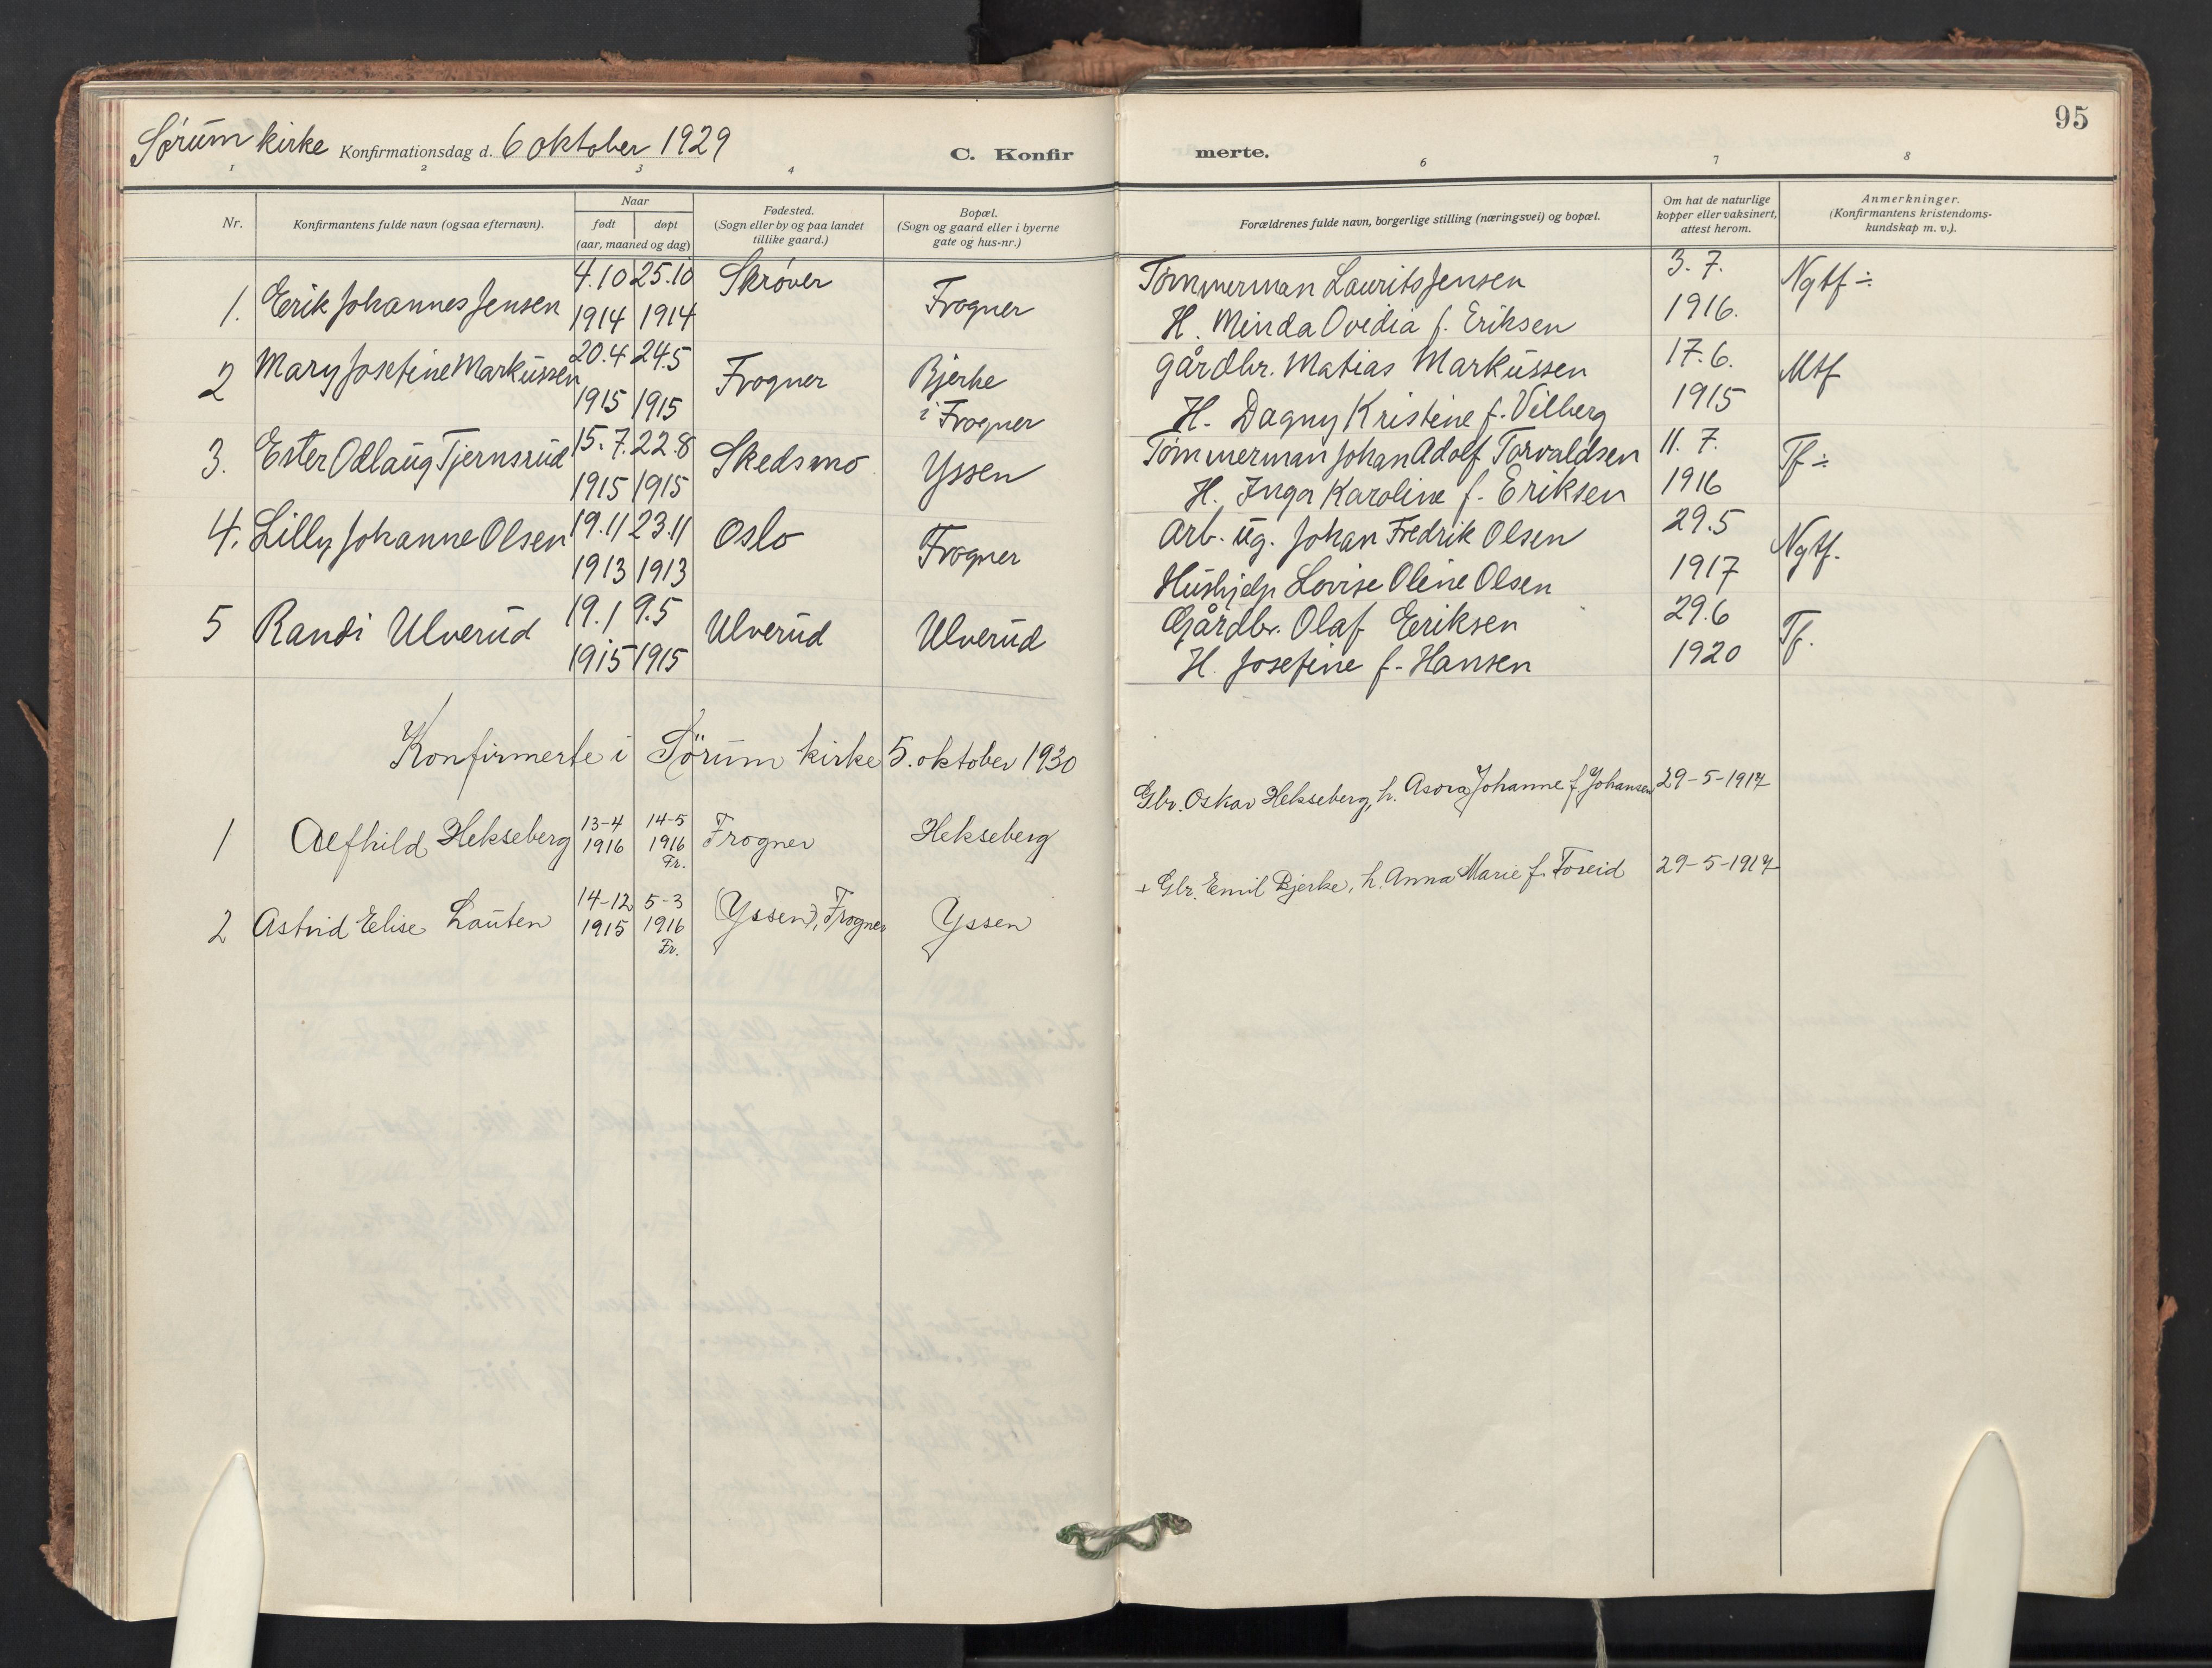 95
Sørum kirke Konfirmationsdag d. 6 oktober 1929 C. Konfir merte.
1 2 3 4 6 7 8
Nr.
Konfirmantens fulde navn (ogsaa efternavn).
Naar
født døpt
(aar, maaned og dag)
Fødested.
(Sogn eller by og paa landet
tillike gaard.)
Bopæl.
(Sogn og gaard eller i byerne
gate og hus-nr.)
Forældrenes fulde navn, borgerlige stilling (næringsvei) og bopæl.
Om hat de naturlige
kopper eller vaksinert,
attest herom.
Anmerkninger.
(Konfirmantens kristendoms-
kundskap m. v.).
1. Erik Johannes Jensen 4.10 25.10 Skrøver Frogner Tømmerman Laurits Jensen 3. 7. Ngtf ÷
1914 1914 H. Minda Ovedia f. Eriksen 1916.
2 Mary Josefine Markussen 20.4 24.5 Frogner Bjerke gårdbr. Matias Markussen 17.6. Mtf
1915 1915 i Frogner H. Dagny Kristine f. Vilberg 1915
3. Ester Odlaug Tjernsrud 15.7. 22.8 Skedsmo Yssen Tømmerman Johan Adolf Torvaldsen 11. 7. Tf ÷
1915 1915 H. Inga Karoline f. Eriksen 1916
4. Lilly Johanne Olsen 19.11 23.11 Oslo Frogner Arb. ug. Johan Fredrik Olsen 29.5 Ngtf.
1913 1913 Hushjelp Lovise Oline Olsen 1917
5 Randi Ulverud 19.1 9.5 Ulverud Ulverud Gårdbr. Olaf Eriksen 29.6 Tf.
1915 1915 H. Josefine f. Hansen 1920
Konfirmerte i Sørum kirke 5. oktober 1930
1 Alfhild Hekseberg 13-4 14-5 Frogner Hekseberg Gbr. Oskar Hekseberg, h. Asora Johanne f Johansen 29-5-1917
1916 1916
Fr.
2 Astrid Elise Lauten 14-12 5-3 (Yssen), Frogner Yssen + Gbr. Emil Bjerke, h. Anna Marie f. Foseid 29-5-1917
1915 1916
Fr.